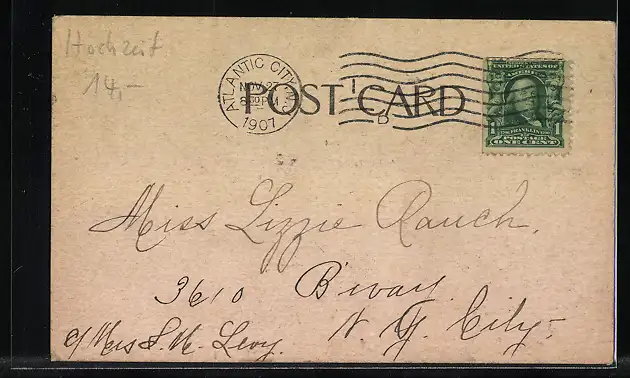 Hochzeit
14,-
ATLANTIC CITY, N.J.
NOV 27
8 30 PM
1907
D
POST CARD
UNITED STATES OF AMERICA
FRANKLIN
1 POSTAGE 1
ONE CENT
Miss Lizzie Rauch.
3610 B'way
c/ Mrs S. M. Levy. N. Y. City-